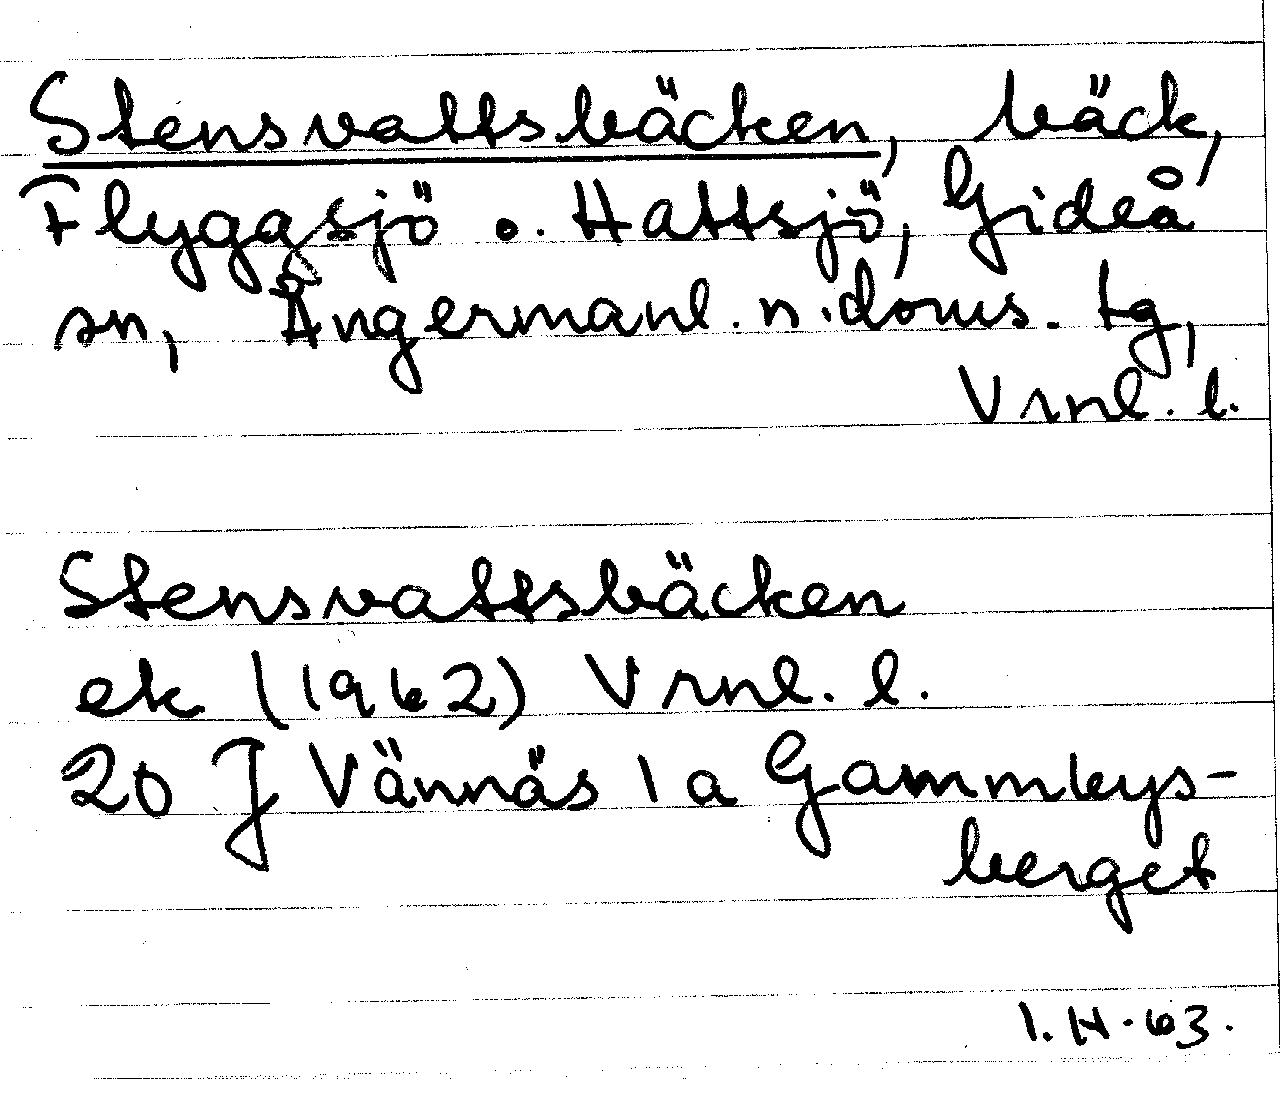 Stensvattsbäcken, bäck,
Flyggsjö o. Hattsjö, Gideå
sn, Ångermanl. n. doms. tg,
Vrnl. l.
Stensvattsbäcken
ek (1962) Vrnl. l.
20 J Vännäs 1 a Gammbys-
berget
I. H. 63.